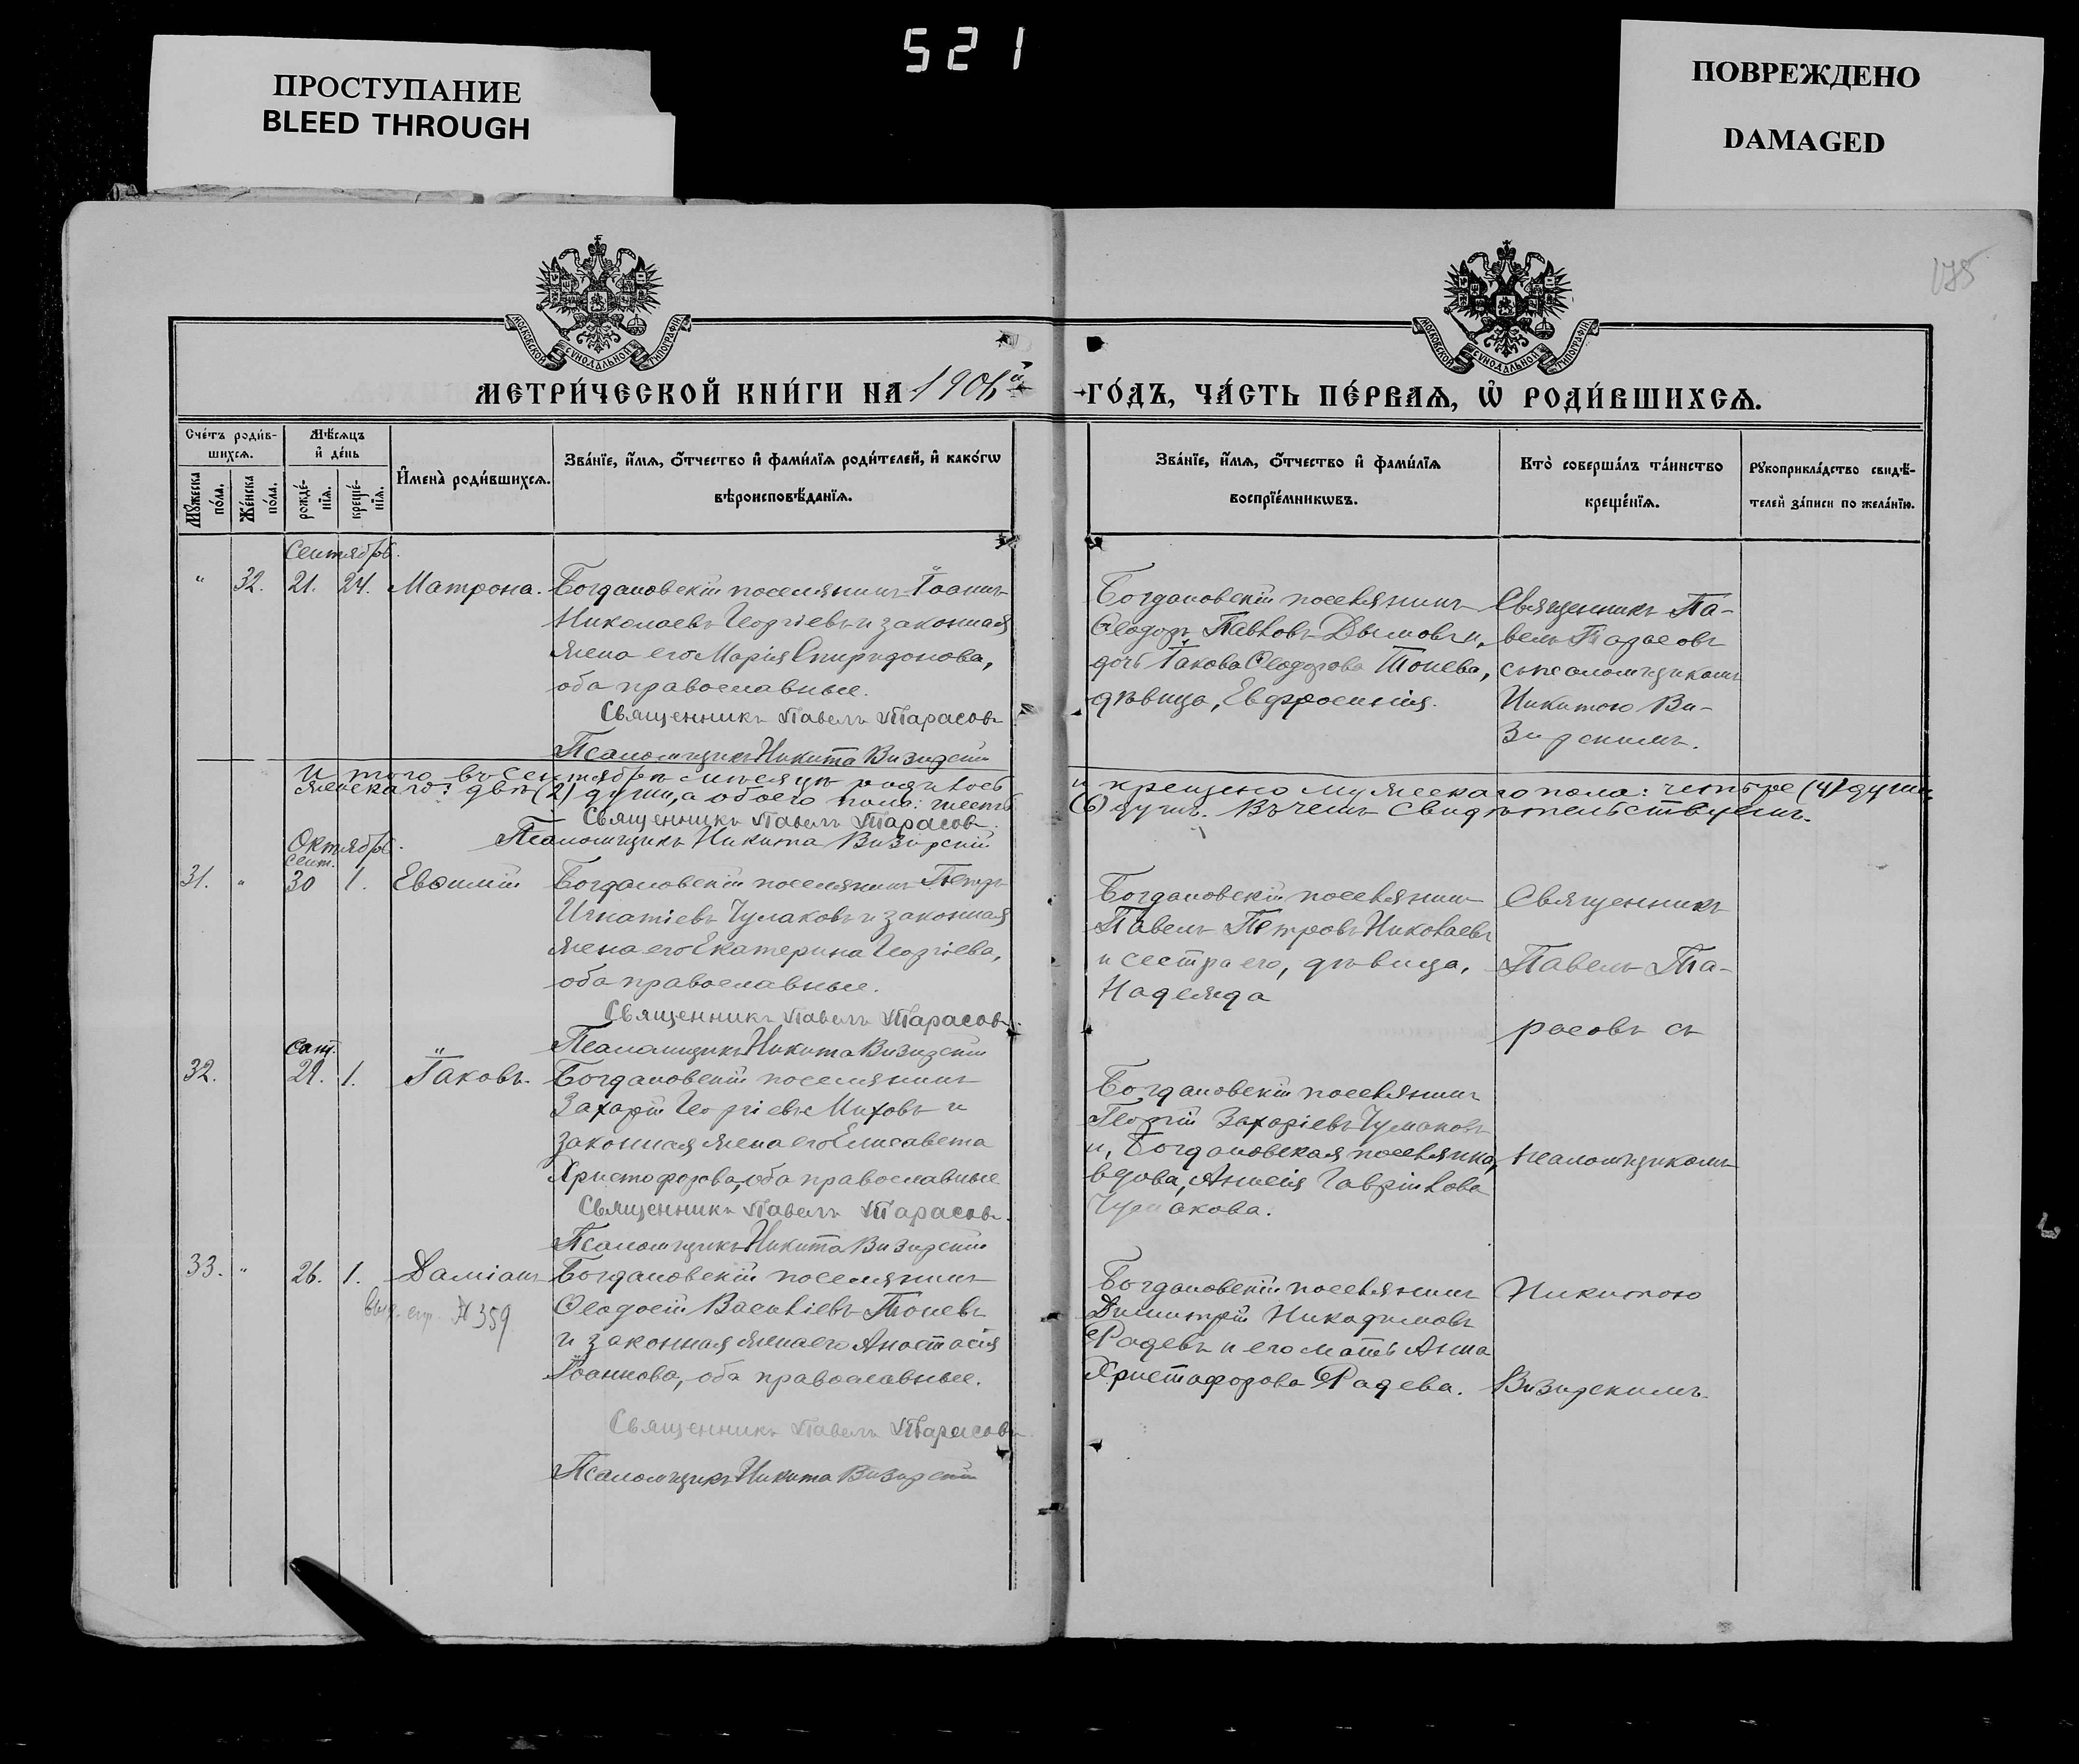 521
ПРОСТУПАНИЕ
BLEED THROUGH
ПОВРЕЖДЕНО
DAMAGED
175
МОСКОВСКОЙ СѴНОДАЛЬНОЙ ТИПОГРАФІИ
МОСКОВСКОЙ СѴНОДАЛЬНОЙ ТИПОГРАФІИ
МЕТРИ́ЧЕСКОЙ КНИ́ГИ НА 1906й
ГО́ДЪ, ЧА́СТЬ ПЕ́РВАѦ, Ѽ РОДИ́ВШИХСѦ.
Сче́тъ роди́в-
шихсѧ.
Мѣ́сѧцъ
и҆ де́нь
Мꙋ́жеска
по́ла.
Же́нска
по́ла.
рожде́-
нїѧ.
креще́-
нїѧ.
И҆мена̀ роди́вшихсѧ.
Зва́нїе, и҆́мѧ, ѻ҆́тчество и҆ фами́лїѧ роди́телей, и҆ како́гѡ
вѣроисповѣ́данїѧ.
Зва́нїе, и҆́мѧ, ѻ҆́тчество и҆ фами́лїѧ
воспрїе́мникѡвъ.
Кто̀ соверша́лъ та́инство
креще́нїѧ.
Рꙋкоприкла́дство свидѣ́-
телей за́писи по жела́нїю.
Сентябрь.
" 32. 21. 24. Матрона. Богдановскій поселянинъ Іоаннъ
Николаевъ Георгіевъ и законная
жена его Марія Спиридонова,
оба православные.
Священникъ Павелъ Тарасовъ
Псаломщикъ Никита Визирскій
Богдановскій поселянинъ
Ѳеодоръ Павловъ Дымовъ и,
дочь Іакова Ѳеодорова Тонева,
дѣвица, Евфросинія.
Священникъ Па-
велъ Тарасовъ
съ псаломщикомъ
Никитою Ви-
зирскимъ.
Итого въ сентябрѣ мѣсяцѣ родилось и крещено мужескаго пола: четыре (4) души,
женскаго: двѣ (2) души, а обоего пола: шесть (6) душъ. Въ чемъ свидѣтельствуемъ.
Священникъ Павелъ Тарасовъ.
Псаломщикъ Никита Визирскій
Октябрь.
сент.
31. " 30 1. Евѳимій Богдановскій поселянинъ Петръ
Игнатіевъ Чумаковъ и законная
жена его Екатерина Георгіева,
оба православные.
Священникъ Павелъ Тарасовъ.
Псаломщикъ Никита Визирскій
Богдановскій поселянинъ
Павелъ Петровъ Николаевъ
и сестра его, дѣвица,
Надежда
Священникъ
Павелъ Та-
расовъ съ
сент.
32. 29. 1. Іаковъ. Богдановскій поселянинъ
Захарій Георгіевъ Миховъ и
законная жена его Елисавета
Христофорова, оба православные
Священникъ Павелъ Тарасовъ.
Псаломщикъ Никита Визирскій
Богдановскій поселянинъ
Георгій Захаріевъ Чумаковъ
и, Богдановская поселянка,
вдова, Анисія Гавріилова
Чумакова.
псаломщикомъ
33. " 26. 1. Даміанъ Богдановскій поселянинъ
Ѳеодосій Василіевъ Тоневъ
и законная жена его Анастасія
Іоаннова, оба православные.
Священникъ Павелъ Тарасовъ.
Псаломщикъ Никита Визирскій
№ 359
Богдановскій поселянинъ
Димитрій Никодимовъ
Радевъ и его мать Анна
Христофорова Радева.
Никитою
Визирскимъ.